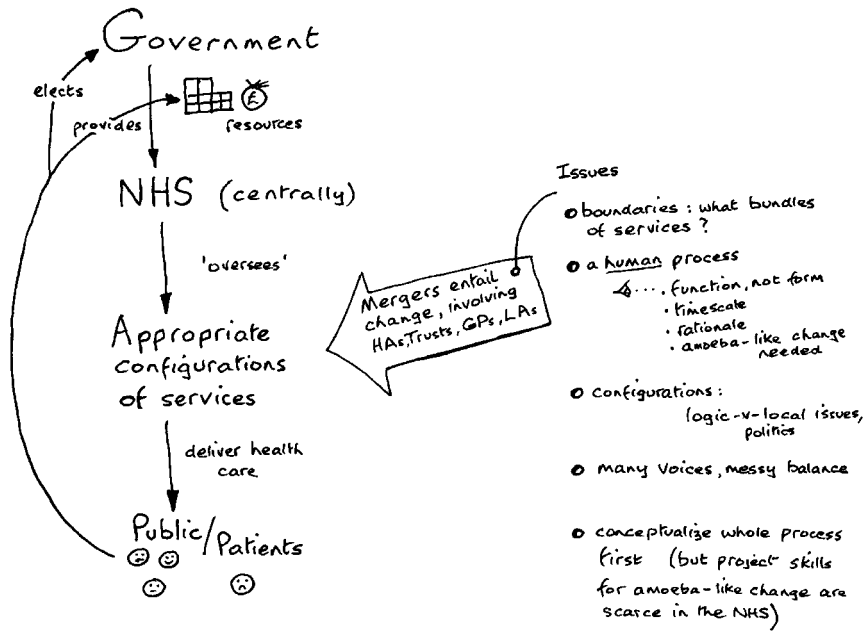 Government
elects
provides
£
resources
NHS (centrally)
'oversees'
Appropriate
configurations
of services
deliver health
care
Public/Patients
Mergers entail
change, involving
HAs, Trusts, GPs, LAs
Issues
boundaries: what bundles
of services?
a human process
function, not form
timescale
rationale
amoeba-like change
needed
configurations:
logic-v-local issues,
politics
many voices, messy balance
conceptualize whole process
first (but project skills
for amoeba-like change are
scarce in the NHS)